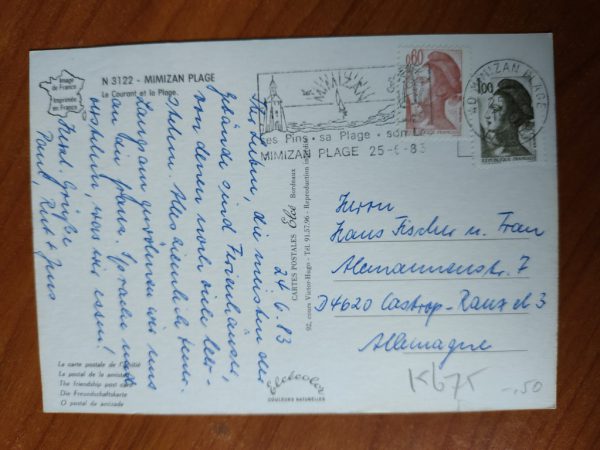 Image
de France
Imprimée
en France
N 3122 - MIMIZAN PLAGE
Le Courant et la Plage.
24.6.83
Ihr Lieben, die meisten der
Gebäude sind Ferienhäuser,
von denen noch viele leer-
stehen. Alles ziemlich teuer.
Langsam gewöhnen wir uns
an die franz. Sprache und
wissen, was wir essen!
Herzl. Grüße
Paul, Ruth + Jens
La carte postale de l'amitié
La postal de la amistad
The friendship post card
Die Freundschaftskarte
O postal de amizade
CARTES POSTALES Elcé Bordeaux
92, cours Victor-Hugo - Tél. 91.57.96 - Reproduction
Elcécolor
COULEURS NATURELLES
Les Pins - sa Plage - son
MIMIZAN PLAGE 25-6-83
0,60
REPUBLIQUE FRANÇAISE
1,00
REPUBLIQUE FRANÇAISE
40 MIMIZAN PLAGE
Herrn
Hans Fischer u. Frau
Alemannenstr. 7
D4620 Castrop-Rauxel 3
Allemagne
Kb75
-,50